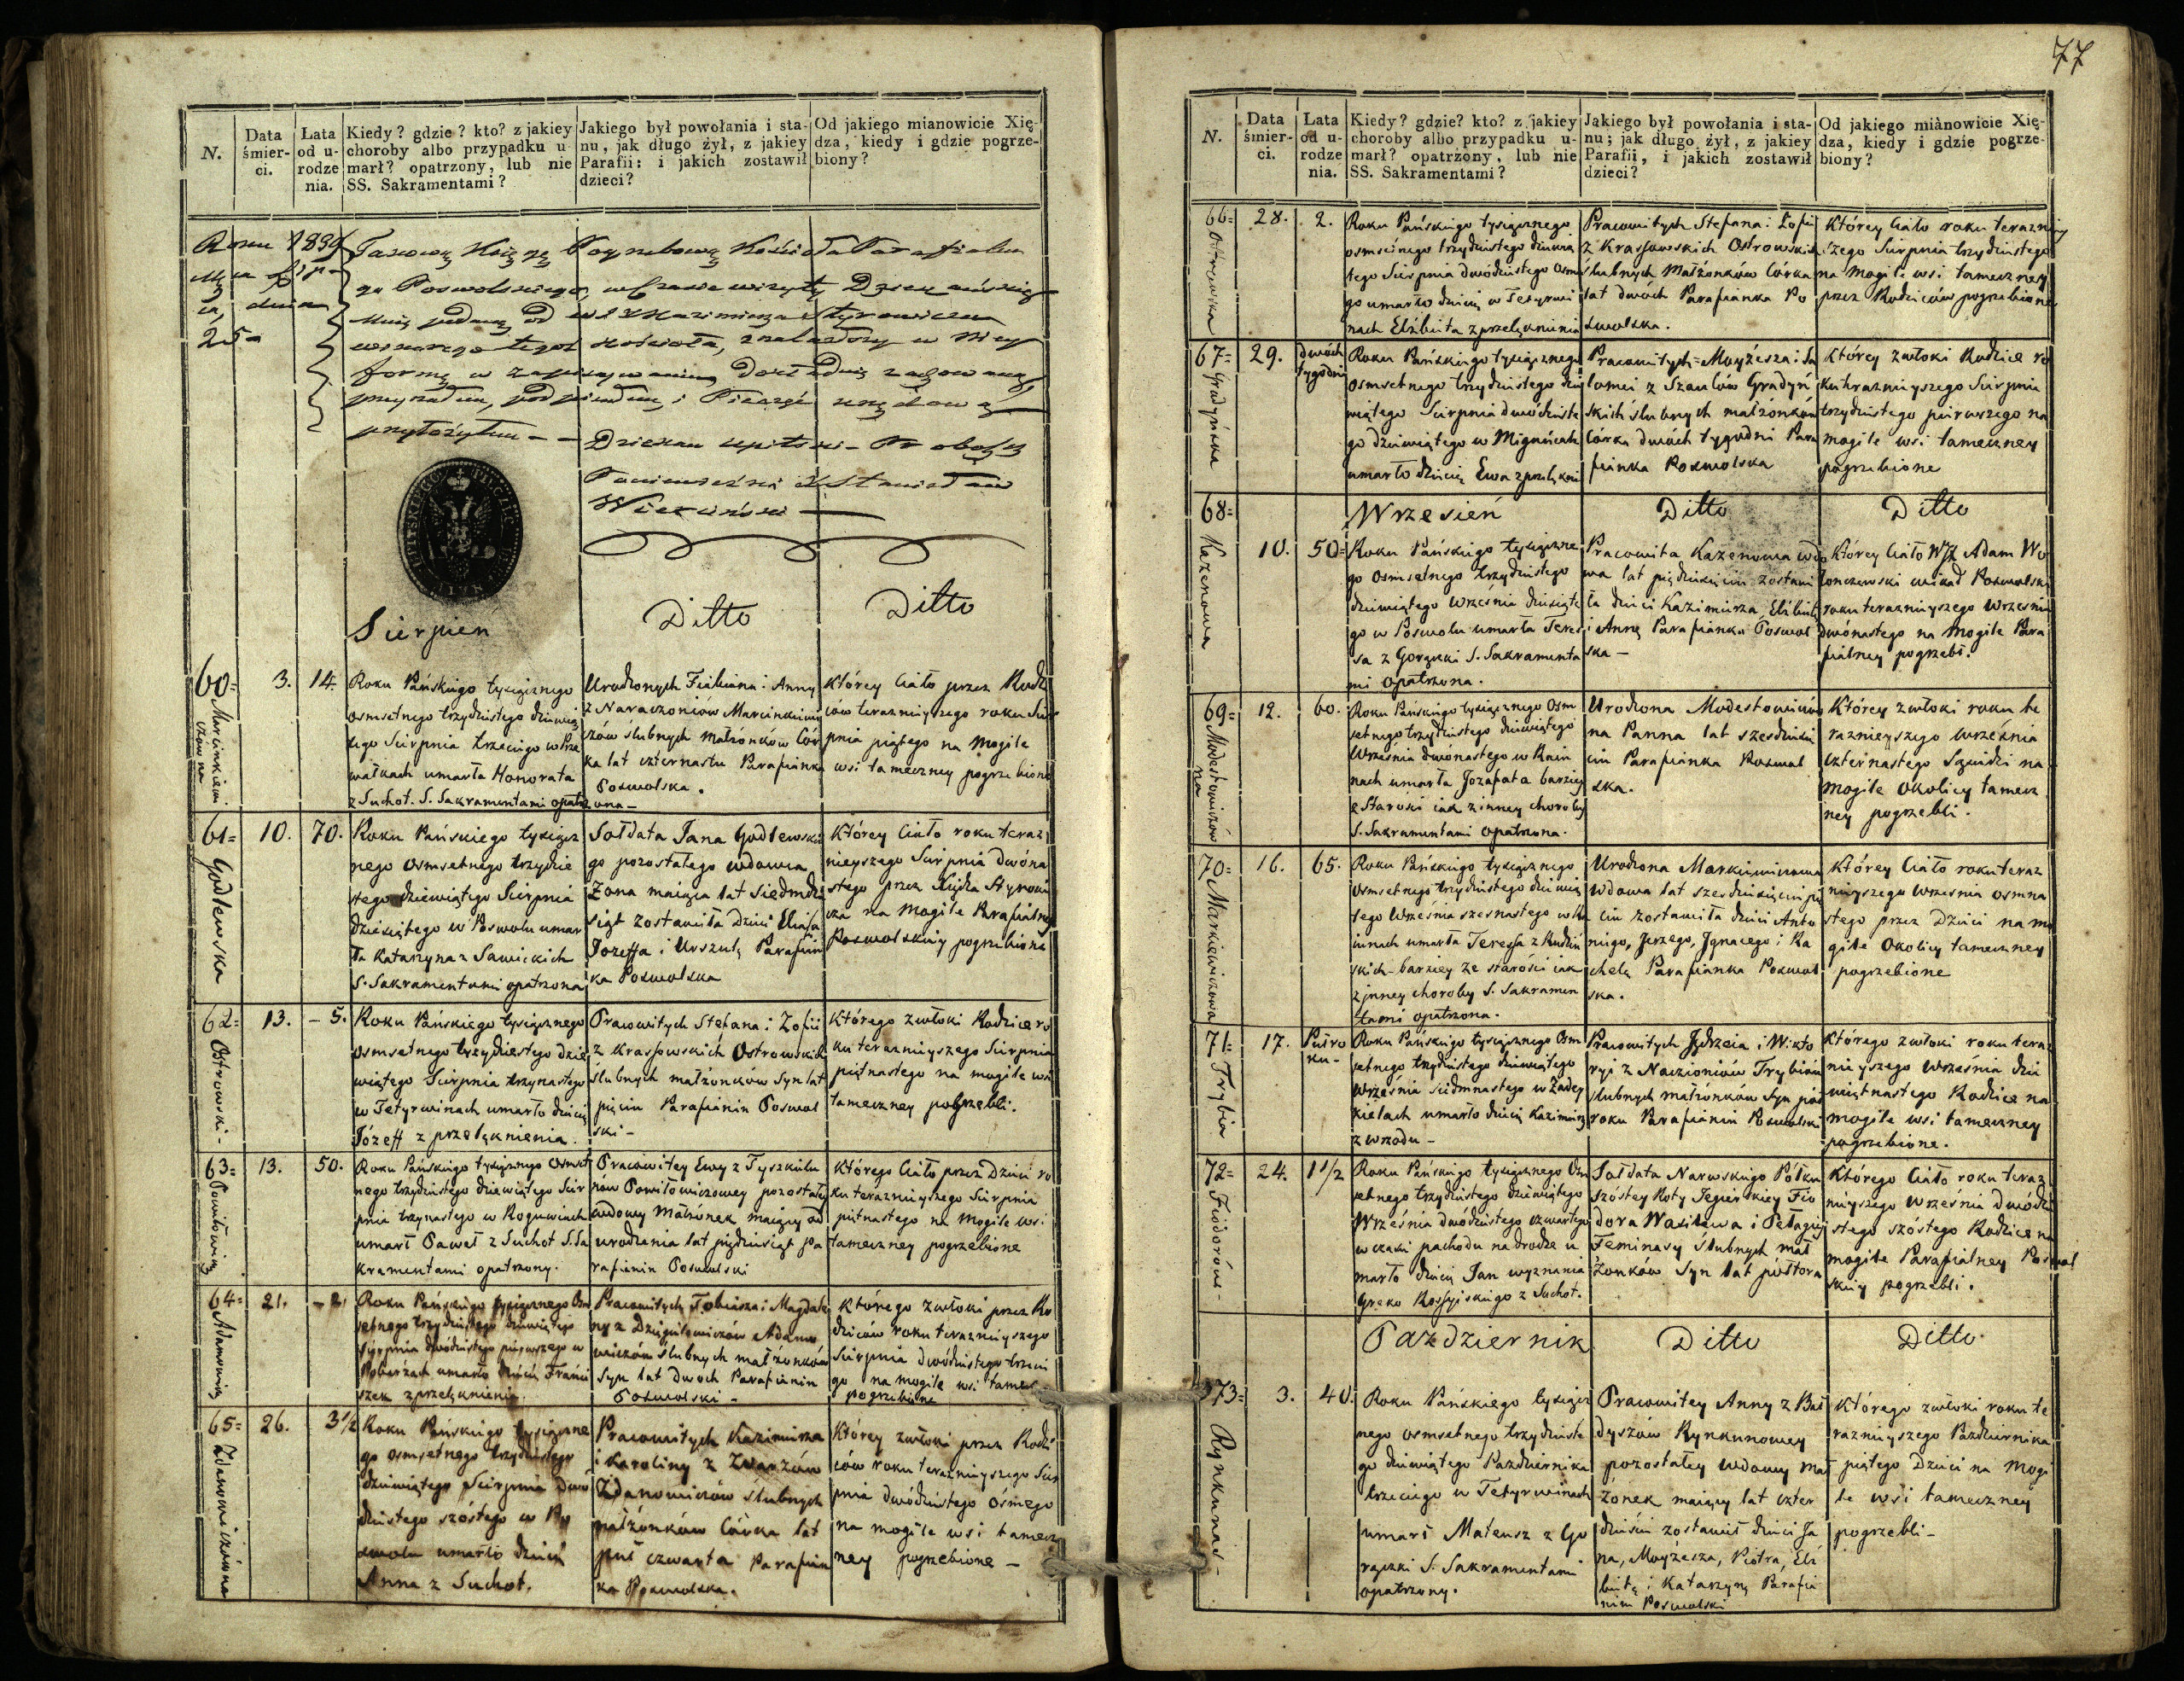 77
N.
Data śmierci.
Lata od urodzenia.
Kiedy? gdzie? kto? z jakiey
choroby albo przypadku u-
marł? opatrzony, lub nie
SS. Sakramentami?
Jakiego był powołania i sta-
nu, jak długo żył, z jakiey
Parafii: i jakich zostawił
dzieci?
Od jakiego mianowicie Xię-
dza, kiedy i gdzie pogrze-
biony?
Roku 1839
dnia
25
Parafialne
go Poswolskiego, w czasie wizyty
formę w zapisywaniu dokładnie zachowaną
przyłożyłem - -
Sierpien
Ditto
Ditto
60=
Marcinkiewi
czowna
3.
14.
Roku Pańskiego tysiącznego
osmsetnego trzydziestego dziewią
tego Sierpnia trzeciego w Prze
wałkach umarła Honorata
z Suchot. S. Sakramentami opatrzona -
Urodzonych Fabiana i Anny
z Naraczoniow Marcinkiewi
czów ślubnych małżonków Cór
ka lat czternastu Parafianka
Poswolska.
Którey Ciało przez Rodzi
ców teraznieyszego roku Sier
pnia piątego na Mogile
wsi tameczney pogrzebione
61=
Godlewska
10.
70.
Roku Pańskiego tysiącz
nego osmsetnego trzydzie
stego dziewiątego Sierpnia
dziesiątego w Poswolu umar
ła Katarzyna z Sawickich
S. Sakramentami opatrzona
Sołdata Jana Godlewskie
go pozostałego wdowca
Zona maiąca lat Siedmdzie
siąt zostawiła Dzieci
Jozeffa i Urszulę Parafian
ka Poswolska
Którey Ciało roku teraz
nieyszego Sierpnia dwóna
stego przez Xiędza Styrowi
cza na Mogile Parafialney
Poswolskiey pogrzebione
62=
Ostrowski -
13.
- 5.
Roku Pańskiego tysiącznego
osmsetnego trzydziestego dzie
wiątego Sierpnia trzynastego
w Tetyrwinach umarło dziecię
Józeff z przelęknienia.
Pracowitych Stefana i Zofii
z Krassowskich Ostrowskich
ślubnych małżonków Syn lat
pięciu Parafianin Poswol
ski -
Którego zwłoki Rodzice ro
ku teraznieyszego Sierpnia
piętnastego na mogile wsi
tameczney pogrzebli.
63=
Powiłowicz
13.
50.
Roku Pańskiego tysiącznego osmset
nego trzydziestego dziewiątego Sier
pnia trzynastego w Roguwiach
umarł Paweł z Suchot S. Sa
kramentami opatrzony.
Pracowitey Ewy z Tyszkule
now Powiłowiczowey pozostałey
wdowy Małżonek maiący od
urodzenia lat pięćdziesiąt Pa
rafianin Poswolski
Którego Ciało przez Dzieci ro
ku teraznieyszego Sierpnia
piętnastego na Mogile wsi
tameczney pogrzebione
64=
Adamowicz
21.
- 2.
Roku Pańskiego tysiącznego Osm
setnego trzydziestego dziewiątego
Sierpnia dwódziestego pierwszego w
umarło dziecię Franci
szek z przelęknienia.
Pracowitych Tobiasza i Magdale
ny z Adamo
wiczów ślubnych małżonków
Syn lat dwoch Parafianin
Poswolski -
Którego zwłoki przez Ro
dziców roku teraznieyszego
Sierpnia dwódziestego trzeci
go na mogile wsi tamecz
pogrzebione
65=
Zdanowiczówna
26.
3 1/2
Roku Pańskiego tysiączne
go osmsetnego trzydziestego
dziewiątego Sierpnia dwó
dziestego szóstego w Po
swolu umarło dziecię
Anna z Suchot.
Pracowitych Kazimierza
i Karoliny z
Zdanowiczów ślubnych
małżonków Córka lat
puł czwarta Parafian
ka Poswolska.
Którey zwłoki przez Rodzi
ców roku teraznieyszego Sier
pnia dwódziestego ósmego
na mogile wsi tamecz
ney pogrzebione -
N.
Data śmierci.
Lata od urodzenia.
Kiedy? gdzie? kto? z jakiey
choroby albo przypadku u-
marł? opatrzony, lub nie
SS. Sakramentami?
Jakiego był powołania i sta-
nu; jak długo żył, z jakiey
Parafii, i jakich zostawił
dzieci?
Od jakiego mianowicie Xię-
dza, kiedy i gdzie pogrze-
biony?
66=
Ostrowska
28.
2.
Roku Pańskiego tysiącznego
osmsetnego trzydziestego dziewią
tego Sierpnia dwódziestego osme
go umarło dziecię w Tetyrwi
nach Elżbieta z przelęknienia
Pracowitych Stefana i Zofii
z Krassowskich Ostrowskich
ślubnych Małżonków Córka
lat dwóch Parafianka Po
swolska.
Którey Ciało roku terazniey
szego Sierpnia trzydziestego
na Mogile wsi tameczney
przez Rodziców pogrzebione
67=
Gradyńska
29.
dwóch
tygodni
Roku Pańskiego tysiącznego
osmsetnego trzydziestego dzie
wiątego Sierpnia dwódzieste
go dziewiątego w Migańcach
umarło dziecię Ewa z przelęknie
Pracowitych Moyżesza i Sa
lomei z Szaulów Gradyń
skich ślubnych małżonków
Córka dwóch tygodni Para
fianka Poswolska
Którey zwłoki Rodzice ro
ku teraznieyszego Sierpnia
trzydziestego pierwszego na
mogile wsi tameczney
pogrzebione
Wrzesień
Ditto
Ditto
68=
Kazenowa
10.
50=
Roku Pańskiego tysiączne
go osmsetnego trzydziestego
dziewiątego Września dziesiąte
go w Poswolu umarła Teres
sa z Gorączki S. Sakramenta
mi opatrzona.
Pracowita Kazenowa wdo
wa lat pięćdziesiąt zostawi
ła dzieci Kazimierza, Elżbietę
i Annę Parafianka Poswol
ska -
Którey Ciało WJX Adam Wo
łonczewski wikad Poswolski
roku teraznieyszego Wrzesnia
dwónastego na Mogile Para
fialney pogrzebł.
69=
Modestowiczów
na
12.
60.
Roku Pańskiego tysiącznego Osm
setnego trzydziestego dziewiątego
Września dwónastego w Kai
nach umarła Jozafata barziey
z Starości iak z inney choroby
S. Sakramentami opatrzona.
Urodzona Modestowiczów
na Panna lat szesdziesi
ciu Parafianka Poswol
ska.
Którey zwłoki roku te
raznieyszego Września
czternastego Sąsiedzi na
mogile Okolicy tamecz
ney pogrzebli.
70=
Markiewiczowa
16.
65.
Roku Pańskiego tysiącznego
Osmsetnego trzydziestego dziewią
tego Września szesnastego w Ka
inach umarła Teressa z Rudzin
skich - barziey ze starości iak
z inney choroby S. Sakramen
tami opatrzona.
Urodzona Markiewiczowa
Wdowa lat szesdziesięciu pię
ciu zostawiła dzieci Anto
niego, Jerzego, Jgnacego i Ra
chelę Parafianka Poswol
ska.
Którey Ciało roku teraz
nieyszego Wrzesnia osmna
stego przez Dzieci na mo
gile Okolicy tameczney
pogrzebione
71=
Trybia
17.
Puł ro
ku -
Roku Pańskiego tysiącznego Osm
setnego trzydziestego dziewiątego
Września siedmnastego w Zadey
kielach umarło dziecię Kazimierz
z wrzodu -
Pracowitych Jędrzeia i Wikto
ryi z Naczioniów Trybiów
ślubnych małżonków Syn puł
roku Parafianin Poswolski
Którego zwłoki roku teraz
nieyszego Września dzie
więtnastego Rodzice na
mogile wsi tameczney
pogrzebione.
72=
Fiodorów -
24.
1 1/2
Roku Pańskiego tysiącznego Osm
setnego trzydziestego dziewiątego
Września dwódziestego czwartego
w czasie pochodu na drodze u
marło dziecię Jan wyznania
Greko Rossyiskiego z Suchot.
Sołdata Narwskiego Półku
szóstey Roty Jegierskiey Fio
dora Wasilewa i Pełagii
Feminasy ślubnych mał
żonków Syn lat półtora
Którego Ciało roku teraz
nieyszego Września dwódzie
stego szóstego Rodzice na
mogile Parafialney Poswol
skiey pogrzebli.
Pazdziernik
Ditto
Ditto
73=
Rynkunas -
3.
40.
Roku Pańskiego tysiącz
nego osmsetnego trzydzieste
go dziewiątego Pazdziernika
trzeciego w Tetyrwinach
umarł Mateusz z Go
rączki S. Sakramentami
opatrzony.
Pracowitey Anny z Bał
dyszów Rynkunowey
pozostałey wdowy Mał
żonek maiący lat czter
dzieści zostawił dzieci Ja
na, Moyżesza, Piotra, Elż
bietę i Katarzynę Parafia
nin Poswolski
Którego zwłoki roku te
raznieyszego Pazdziernika
piątego Dzieci na Mogi
le wsi tameczney
pogrzebli -